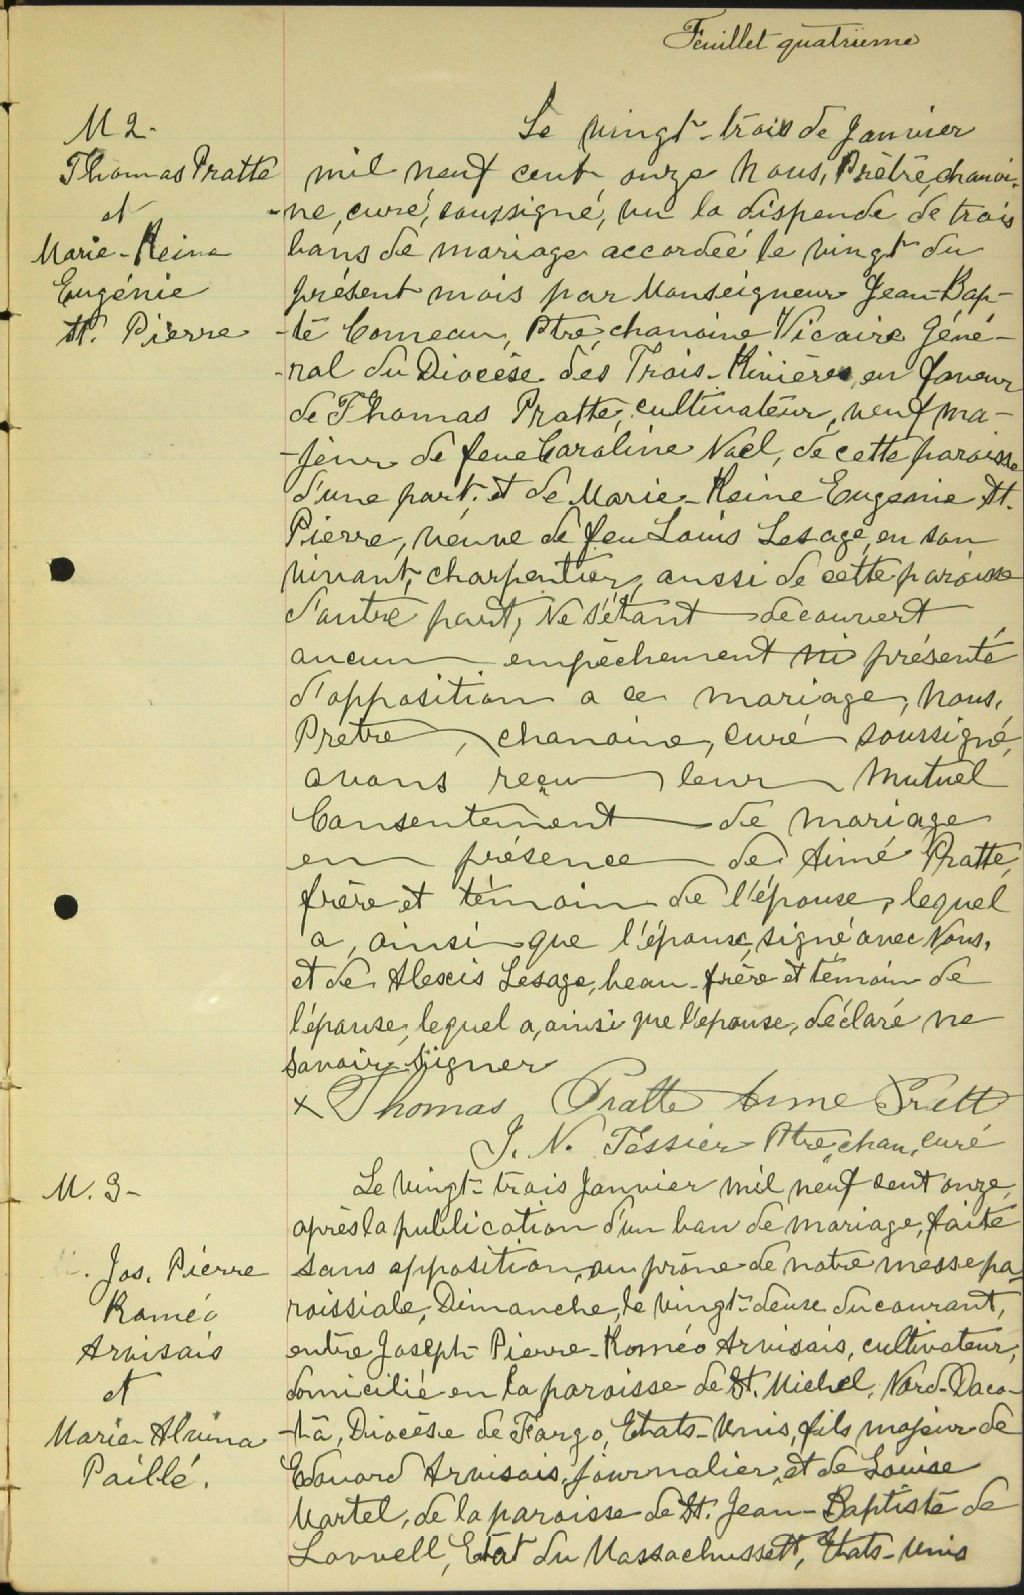 Feuillet quatrième
M 2-
Thomas Pratte
et
Marie-Reine
Eugénie
St. Pierre
Le vingt-trois de Janvier
mil neuf cent onze Nous, Prêtre, chanoi-
-ne, curé, soussigné, vu la dispense de trois
bans de mariage accordée le vingt du
présent mois par Monseigneur Jean-Bap-
-te Comeau, Ptre, chanoine Vicaire Géné-
-ral du Diocèse des Trois-Rivières, en faveur
de Thomas Pratte, cultivateur, veuf ma-
-jeur de feue Caroline Noel, de cette paroisse
d'une part, et de Marie-Reine Eugenie St.
Pierre, veuve de feu Louis Lesage, en son
vivant, charpentier, aussi de cette paroisse
d'autre part, Ne s'étant découvert
aucun empêchement ni présenté
d'opposition a ce mariage, Nous,
Prêtre, chanoine, curé soussigné,
avons reçu leur mutuel
Consentement de mariage
en présence de Aimé Pratte,
frère et témoin de l'épouse, lequel
a, ainsi que l'épouse, signé avec Nous,
et de Alexis Lesage, beau-frère et témoin de
l'épouse, lequel a, ainsi que l'épouse, déclaré ne
savoir signer
x Thomas Pratte Aime Pratt
J. N. Tessier Ptre, chan, curé
M. 3-
Jos. Pierre
Roméo
Arvisais
et
Marie-Alvina
Paillé.
Le vingt-trois Janvier mil neuf cent onze,
après la publication d'un ban de mariage, faite
sans opposition, au prône de notre messe pa-
roissiale, Dimanche, le vingt-deux du courant,
entre Joseph-Pierre-Roméo Arvisais, cultivateur,
domicilié en la paroisse de St. Michel, Nord-Daco-
-ta, Diocèse de Fargo, Etats-Unis, fils majeur de
Edouard Arvisais, journalier, et de Louise
Martel, de la paroisse de St. Jean-Baptiste de
Lowell, Etat du Massachussett, Etats-Unis